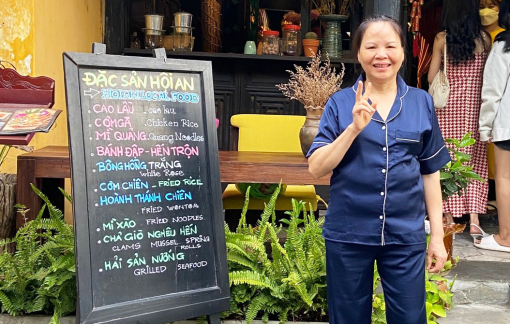 ĐẶC SẢN HỘI AN
HOI AN LOCAL FOOD
• CAO LẦU / Cao lau
• CƠM GÀ / Chicken Rice
• MÌ QUẢNG / Quang Noodles
• BÁNH ĐẬP - HẾN TRỘN
BÔNG HỒNG TRẮNG
White Rose
CƠM CHIÊN - FRIED RICE
HOÀNH THÁNH CHIÊN
FRIED WONTON
• MÌ XÀO / FRIED NOODLES
• CHẢ GIÒ NGHÊU HẾN
CLAMS MUSSEL SPRING
ROLLS
• HẢI SẢN NƯỚNG
GRILLED SEAFOOD